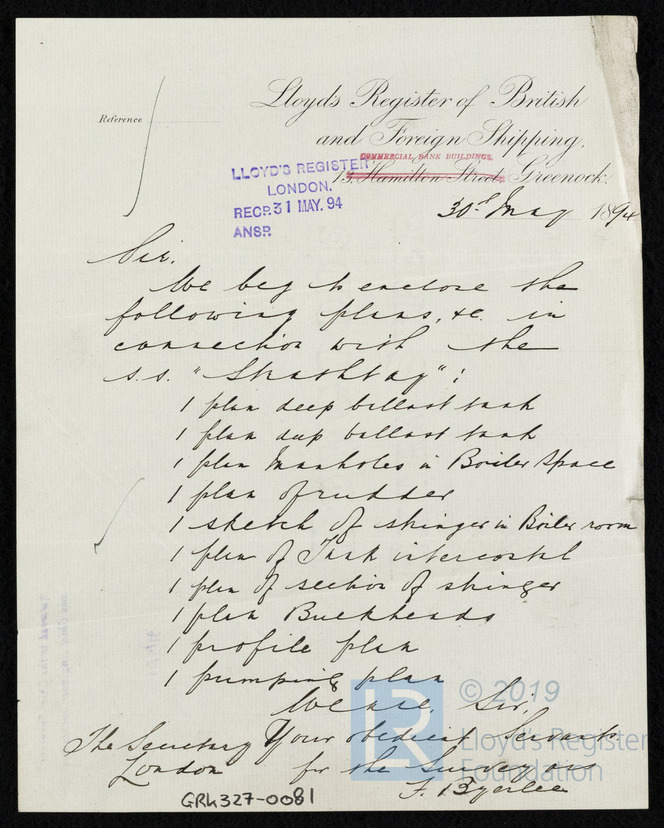 Lloyds Register of British
and Foreign Shipping,
Reference
COMMERCIAL BANK BUILDINGS,
13, Hamilton Street, Greenock.
LLOYD'S REGISTER
LONDON.
RECD. 31 MAY. 94
ANSD.
30th May 1894
Sir.
We beg to enclose the
following plans, &c. in
connection with the
s.s. "Strathtay":
1 plan deep ballast tank
1 plan deep ballast tank
1 plan Manholes in Boiler Space
1 plan of rudder
1 sketch of stringer in Boiler room
1 plan of Tank intercostal
1 plan of section of stringer
1 plan Bulkheads
1 profile plan
1 pumping plan
We are, Sir,
Your obedient Servants
The Secretary
London
for the Surveyors
F. Byerlee
GRK327-0081
LR
© 2019
Lloyd's Register
Foundation